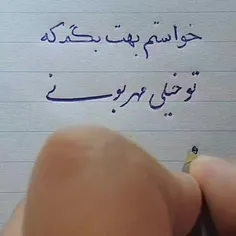 خواستم بهت بگم که
تو خیلی مهربونی